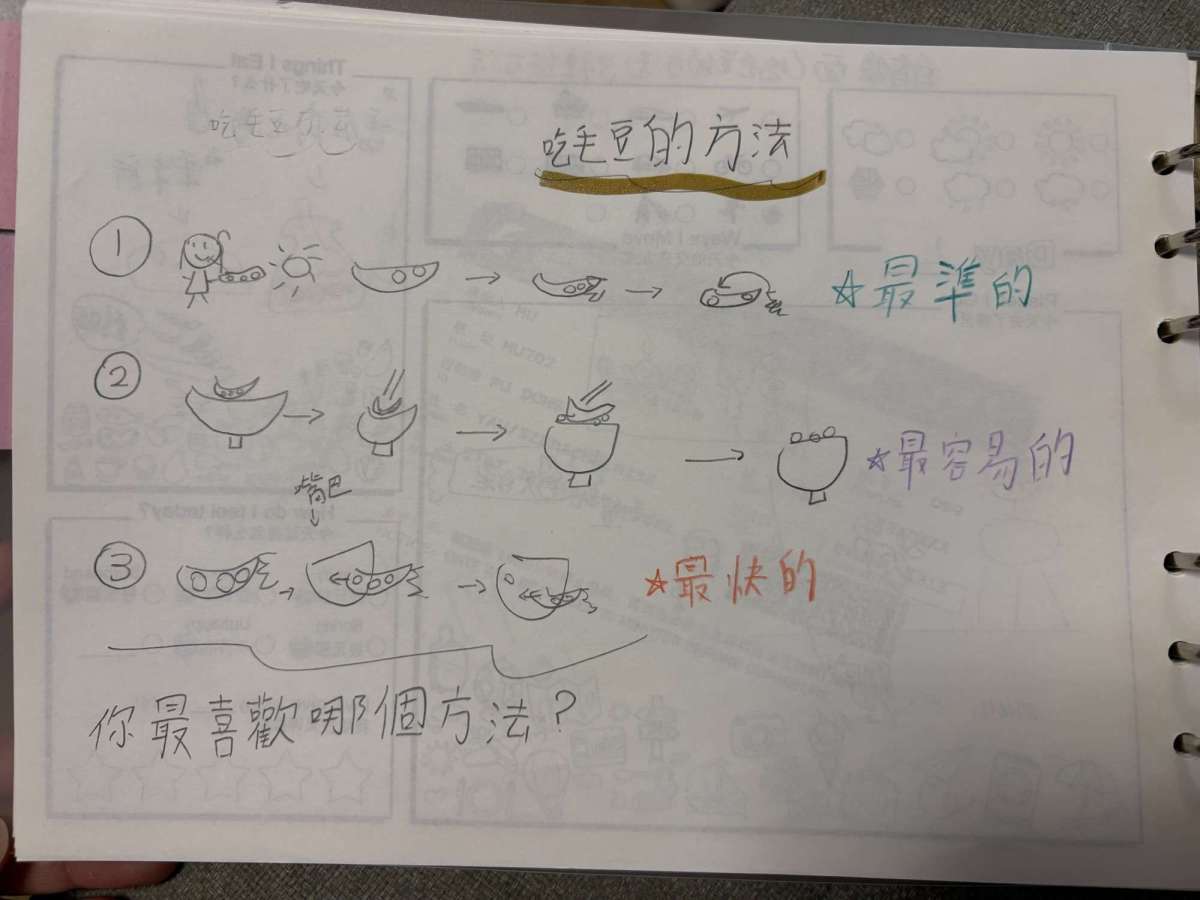 吃毛豆的方法
① ☆最準的
② ☆最容易的
嘴巴
③ ☆最快的
你最喜歡哪個方法?